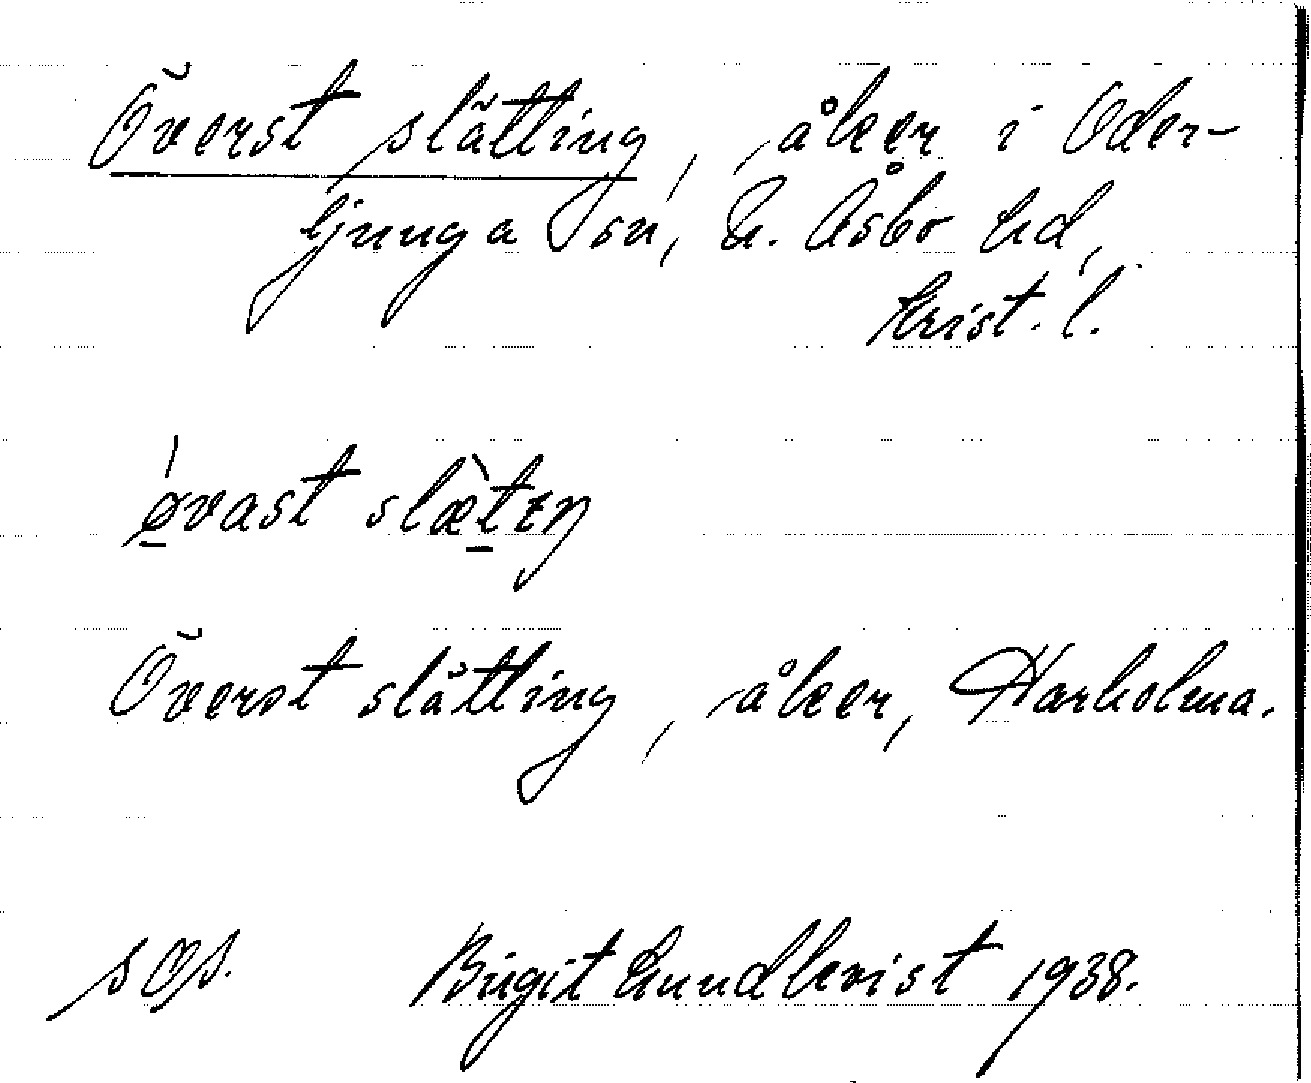 Överst slätting, åker i Oder-
ljunga sn, N. Åsbo hd,
Krist. l.
øvast slætɪŋ
Överst slätting, åker, Harholma.
SOS. Birgit Lundkvist 1938.